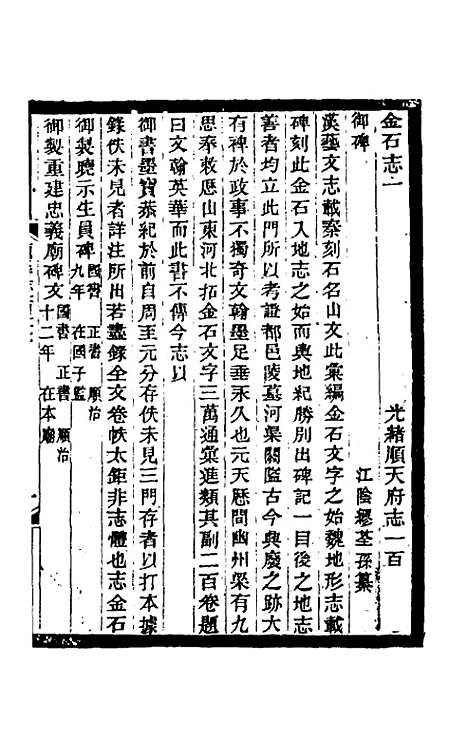 金石志一 光緒順天府志一百
御碑 江陰繆荃孫纂
漢藝文志載秦刻石名山文此彙編金石文字之始魏地形志載
碑刻此金石入地志之始而輿地紀勝別出碑記一目後之地志
善者均立此門所以考證都邑陵墓河渠關隘古今興廢之跡大
有碑於政事不獨奇文翰墨足垂永久也元天曆間幽州梁有九
思奉敕歷山東河北拓金石文字三萬通彙進類其副二百卷題
曰文翰英華而此書不傳今志以
御書墨寶恭紀於前自周至元分存佚未見三門存者以打本據
錄佚未見者詳注所出若盡錄全文卷帙太鉅非志體也志金石
御製曉示生員碑 國書 正書 順治九年 在國子監
御製重建忠義廟碑文 國書 正書 順治十二年 在本廟